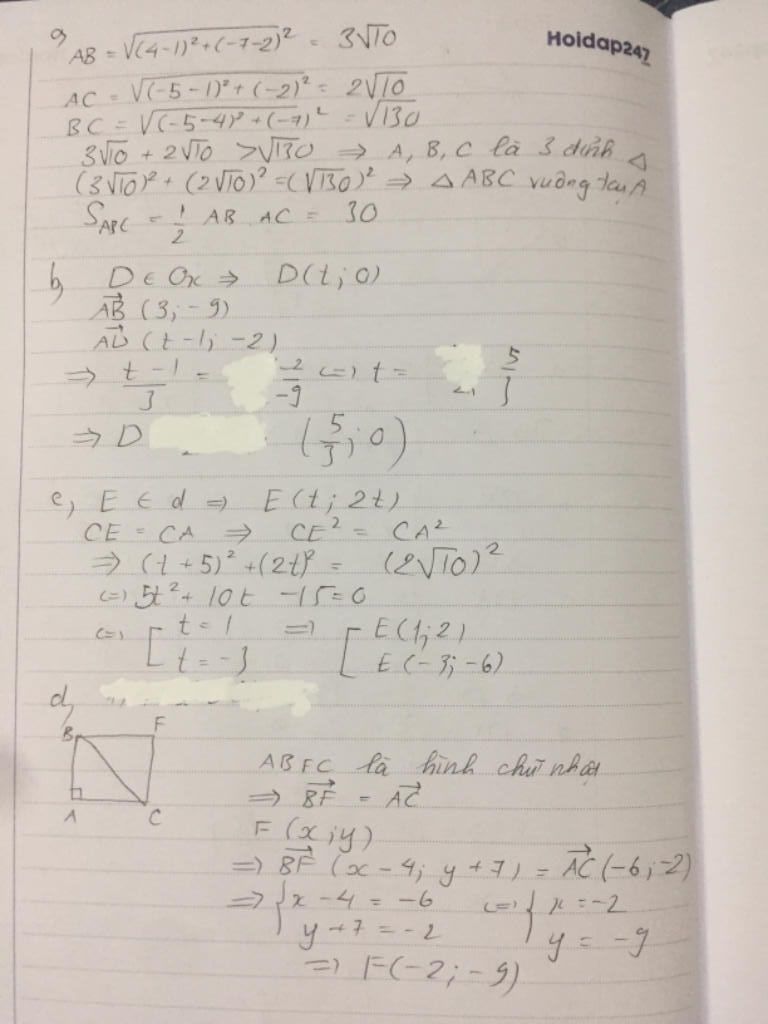 Hoidap247
a, AB = √(4-1)²+(-7-2)² = 3√10
AC = √(-5-1)²+(-2)² = 2√10
BC = √(-5-4)²+(-7)² = √130
3√10 + 2√10 > √130 ⇒ A, B, C là 3 đỉnh △
(3√10)² + (2√10)² = (√130)² ⇒ △ ABC vuông tại A
S_ABC = 1/2 AB AC = 30
b, D ∈ Ox ⇒ D(t; 0)
AB→ (3; -9)
AD→ (t-1; -2)
⇒ t-1/3 = -2/-9 <=> t = 5/3
⇒ D (5/3; 0)
c, E ∈ d ⇒ E(t; 2t)
CE = CA ⇒ CE² = CA²
⇒ (t+5)² + (2t)² = (2√10)²
<=> 5t² + 10t - 15 = 0
<=> [ t = 1 ⇒ [ E(1; 2)
t = -3 E(-3; -6)
d,
B F
A C
ABFC là hình chữ nhật
⇒ BF→ = AC→
F(x; y)
⇒ BF→ (x-4; y+7) = AC→ (-6; -2)
⇒ { x-4 = -6 <=> { x = -2
y+7 = -2 y = -9
⇒ F(-2; -9)